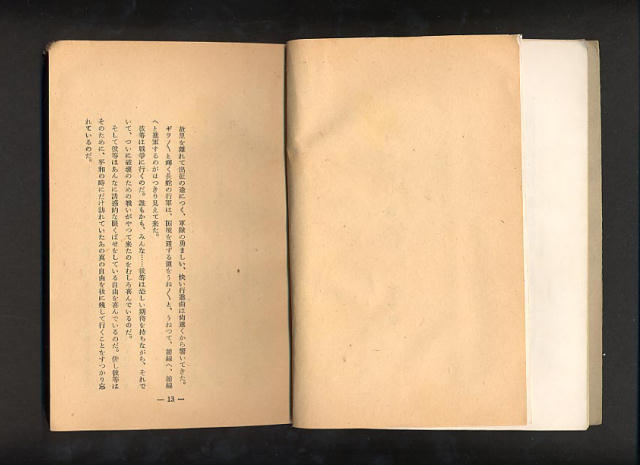 故里を離れて出征の途につく、軍隊の勇ましい、快い行進曲は尚遠くから響いてきた。
ギラ〳〵と輝く長蛇の行軍は、国境を過ずる嶺をうね〳〵と、うねつて、前線へ、前線
へと進軍するのがはつきり見えて来た。
彼等は戦争に行くのだ。誰もかも、みんな……彼等は悲しい期待を持ちながら、それで
いて、ついに破壊のための戦いがやつて来たのをむしろ喜んでいるのだ。
そして彼等はあんなに誘惑的な眼くばせをしている自由を喜んでいるのだ。併し彼等は
そのために、平和の時にだけ訪れていたあの真の自由を後に残して行くことをすつかり忘
れているのだ。
— 13 —